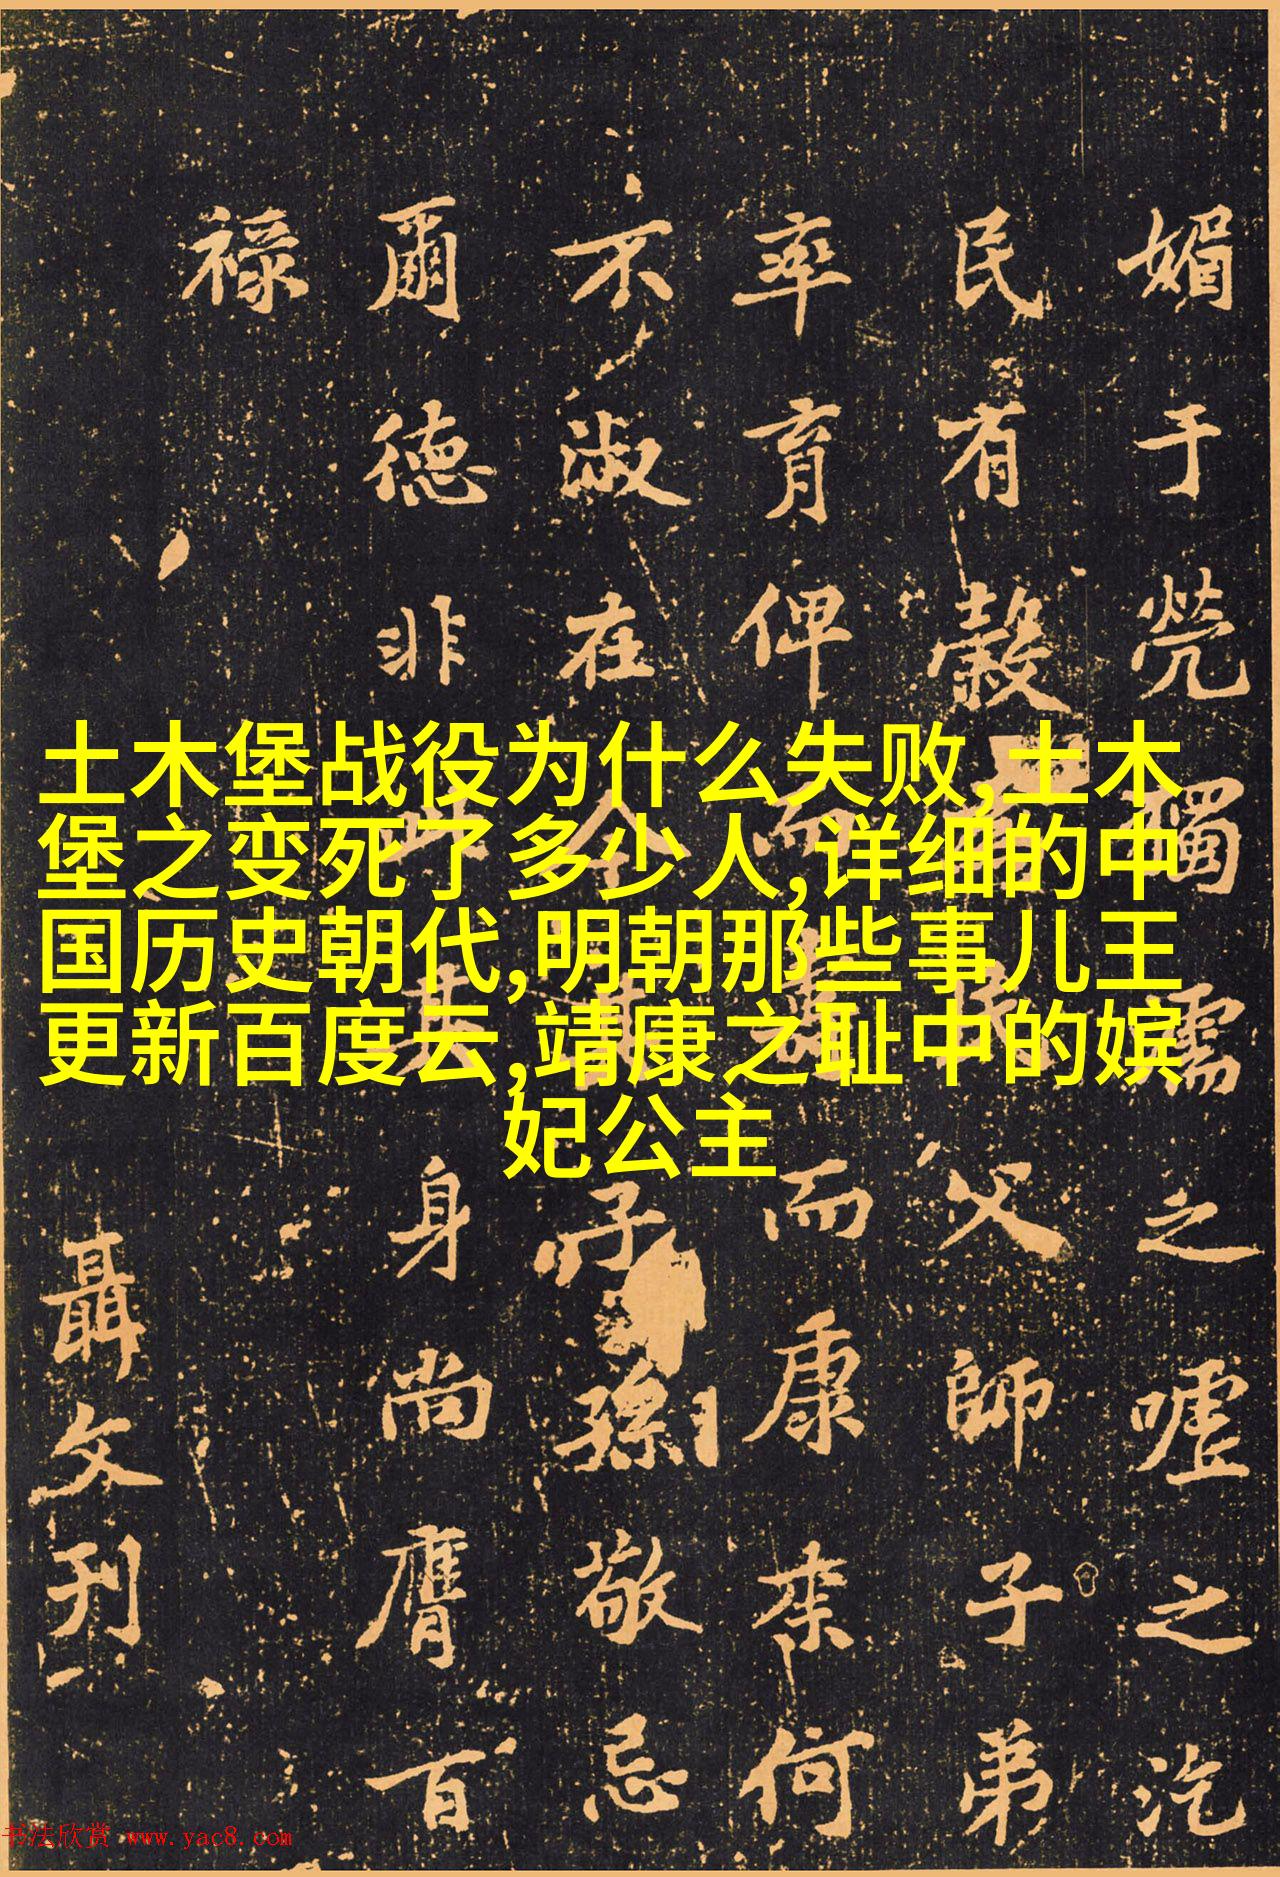 土木堡战役为什么失败,土木
堡之变死了多少人,详细的中
国历史朝代,明朝那些事儿王
更新百度云,靖康之耻中的嫔
妃公主
媚于煢獨濡之嘘之汔
民有穀父師子弟
率育俾而而康来何
不淑在今子孫敬忌
爾德非此其身尚膺百
禄
聶文刊
书法欣赏 www.yac8.com